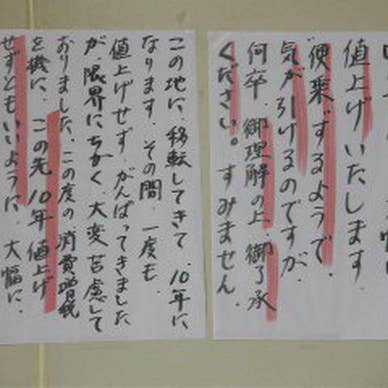 値上げいたします。
“便乗”するようで、
気が引けるのですが、
何卒、御理解の上、御了承
ください。すみません。
この地に、移転してきて、10年に
なります。その間、一度も
値上げせず、がんばってきました
が、限界にちかく、大変苦慮して
おりました。この度の消費増税
を機に、この先10年値上げ
せずともいいように、大幅に、